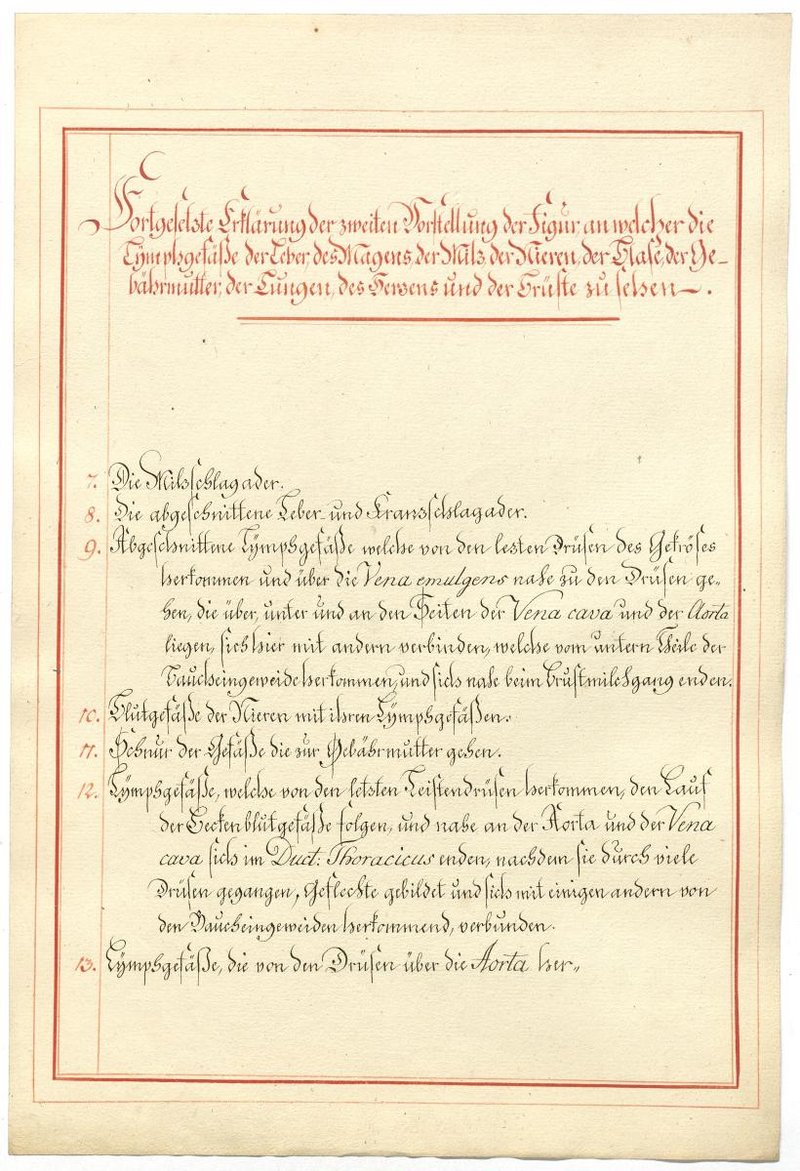 Fortgesetzte Erklärung der zweiten Vorstellung der Figur an welcher die
Lÿmphgefäße der Leber, des Magens, der Milz, der Nieren, der Blase, der Ge-
bährmutter, der Lungen, des Herzens und der Brüste zu sehen —.
7. Die Milzschlagader.
8. Die abgeschnittene Leber- und Kranzschlagader.
9. Abgeschnittene Lÿmphgefäße welche von den lezten Drüsen des Gekröses
herkommen und über die Vena emulgens nahe zu den Drüsen ge-
hen, die über, unter und an den Seiten der Vena cava und der Aorta
liegen, sich hier mit andern verbinden, welche vom untern Theile der
Baucheingeweide herkommen, und sich nahe beim Brustmilchgang enden.
10. Blutgefäße der Nieren mit ihren Lÿmphgefäßen.
11. Schnur der Gefäße die zur Gebährmutter gehen.
12. Lÿmphgefäße, welche von den letzten Leistendrüsen herkommen, den Lauf
der Beckenblutgefäße folgen, und nahe an der Aorta und der Vena
cava sich im Duct: Thoracicus enden, nachdem sie durch viele
Drüsen gegangen, Geflechte gebildet und sich mit einigen andern von
den Baucheingeweiden herkommend, verbunden.
13. Lÿmphgefäße, die von den Drüsen über die Aorta her„